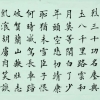 烈三十功名塵與
土八千里路雲和
月莫等閒白了少
年頭空悲切靖康
恥猶未雪臣子恨
何時滅駕長車踏
破賀蘭山缺壯志
飢餐胡虜肉笑談